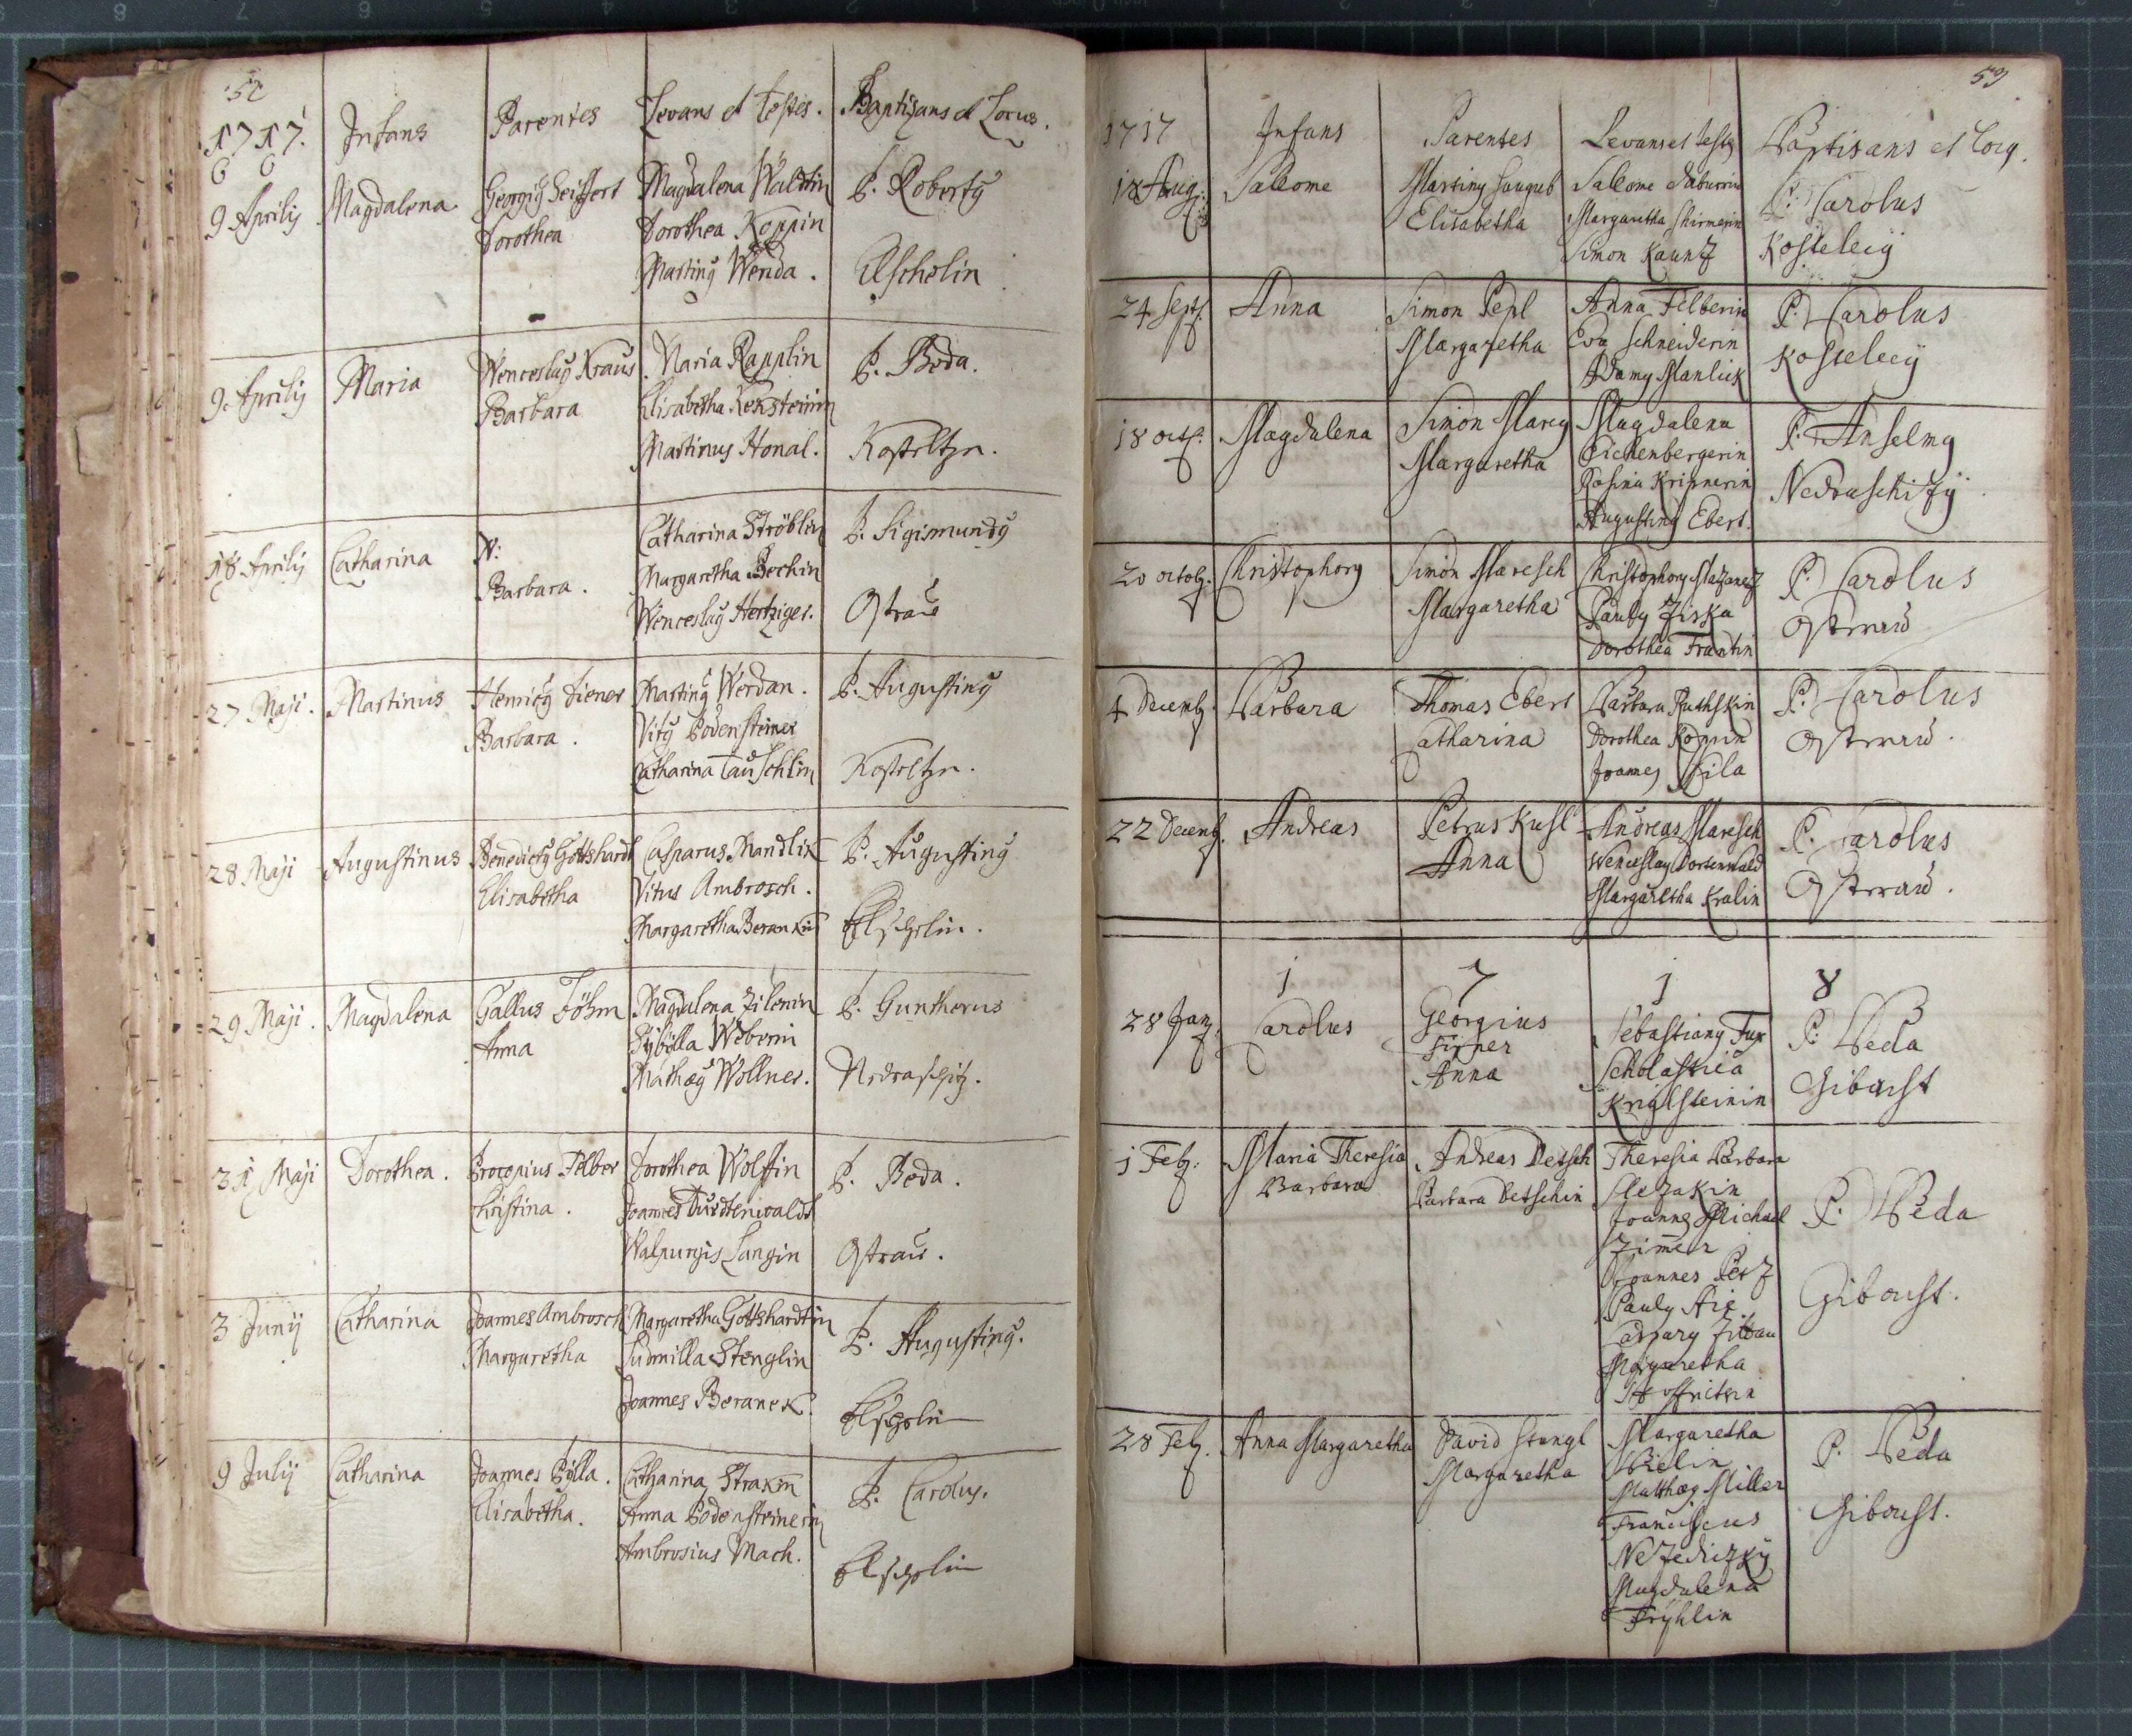 52
1717.
Infans
Parentes
Levans et Testes.
Baptizans et Locus.
9 Aprilis
Magdalena
Georgius Seiffert
Dorothea
Magdalena Waldtin
Dorothea Koppin
Martinus Wenda.
P. Robertus
Elschelin
9. Aprilis
Maria
Wenceslaus Kraus
Barbara
Maria Rapplin
Elisabetha
Martinus Honal.
P. Beda.
Kosteltzn.
18 Aprilis
Catharina
N:
Barbara.
Catharina Ströblin
Margaretha Beckin
Wenceslaus Hertziger.
P. Sigismundus
Ostrau
27 Maji.
Martinus
Henricus Diener
Barbara.
Martinus Werdan.
Vitus Bodensteiner
Catharina Tauschlin
P. Augustinus
Kosteltzn.
28 Maji
Augustinus
Benedictus Gottshardt
Elisabetha
Casparus Mandlik
Vitus Ambrosch.
Margaretha Berankin
P. Augustinus
Elschelin.
29 Maji.
Magdalena
Gallus Böhm
Anna
Magdalena Zilenin
Sybilla Weberin
Mathæus Wollner.
P. Guntherus
Nedraschitz.
31 Maji
Dorothea.
Procopius Felber
Christina.
Dorothea Wolffin
Joannes Durdtenwaldt
Walpurgis Langin
P. Beda.
Ostrau.
3 Junij
Catharina
Joannes Ambrosch
Margaretha
Margaretha Gottshardtin
Ludmilla Stenglin
Joannes Beranek.
P. Augustinus.
Elschelin
9 Julij
Catharina
Joannes Bylla.
Elisabetha.
Catharina Strakin
Anna Bodensteinerin
Ambrosius Mach.
P. Carolus.
Elschelin
59
1717
Infans
Parentes
Levans et testes
Baptisans et Locus.
18 Aug:
Salome
Martinus
Elisabetha
Salome
Margaretha Shirmerin
Simon Kauntz
P. Carolus
Kosteleiy
24 Sept.
Anna
Simon Pepl
Margaretha
Anna Felberin
Eva Schneiderin
Adamus Manlick
P. Carolus
Kosteleiy
18 octb.
Magdalena
Simon Mareg
Margaretha
Magdalena
Eichenbergerin
Rosina Kripnerin
Augustinus Ebert.
P. Anselmus
Nedraschitzy
20 octob.
Christophorus
Simon Maresch
Margaretha
Christophorus Mazanetz
Paulus Ziska
Dorothea Frantin
P. Carolus
Osterau
4 Decemb.
Barbara
Thomas Ebert
Catharina
Barbara Ruthskin
Dorothea Koppin
Joannes Fila
P. Carolus
Osterau.
22 Decemb.
Andreas
Petrus Kusl
Anna
Andreas Maresch
Wenceslaus Dortenwald
Margaretha Kralin
P. Carolus
Osterau.
1 7 1 8
28 Jan.
Carolus
Georgius
Firner
Anna
Sebastianus Fux
Scholastica
Kriglsteinin
P. Beda
Gibacht
1 Feb.
Maria Theresia
Barbara
Andreas Detsch
Barbara Detschin
Theresia Barbara
Slezakin
Joannes Michael
Zimer
Joannes Petz
Paulus Aix.
Casparus
Margaretha
P. Beda
Gibacht.
28 Feb.
Anna Margaretha
David Stengl
Margaretha
Margaretha
Bielin
Matthæus Miller
Franciscus
Nezedizky
Magdalena
Fryhlin
P. Beda
Gibacht.